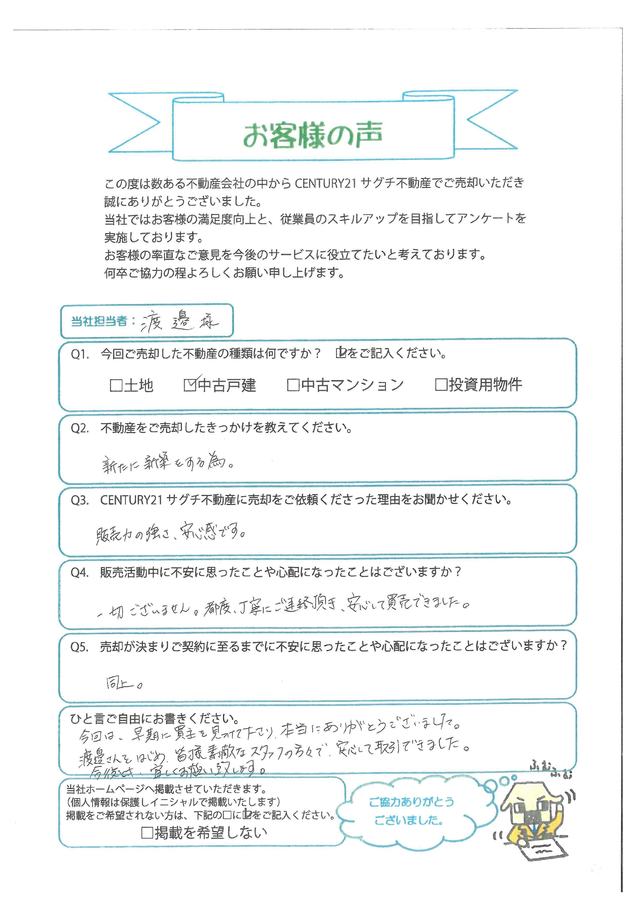 お客様の声
この度は数ある不動産会社の中から CENTURY21 サグチ不動産でご売却いただき
誠にありがとうございました。
当社ではお客様の満足度向上と、従業員のスキルアップを目指してアンケートを
実施しております。
お客様の率直なご意見を今後のサービスに役立てたいと考えております。
何卒ご協力の程よろしくお願い申し上げます。
当社担当者： 渡邉様
Q1. 今回ご売却した不動産の種類は何ですか？ ☑をご記入ください。
□土地 ☑中古戸建 □中古マンション □投資用物件
Q2. 不動産をご売却したきっかけを教えてください。
新たに新築とする為。
Q3. CENTURY21 サグチ不動産に売却をご依頼くださった理由をお聞かせください。
販売力の強さ、安心感です。
Q4. 販売活動中に不安に思ったことや心配になったことはございますか？
一切ございません。都度、丁寧にご連絡頂き、安心して買売できました。
Q5. 売却が決まりご契約に至るまでに不安に思ったことや心配になったことはございますか？
同上。
ひと言ご自由にお書きください。
今回は、早期に買主を見つけて下さり、本当にありがとうございました。
渡邉さんをはじめ、皆様素敵なスタッフの方々で、安心して取引できました。
今後とも、宜しくお願い致します。
当社ホームページへ掲載させていただきます。
（個人情報は保護しイニシャルで掲載いたします）
掲載をご希望されない方は、下記の□に☑をご記入ください。
□掲載を希望しない
ご協力ありがとう
ございました。
ふむふむ